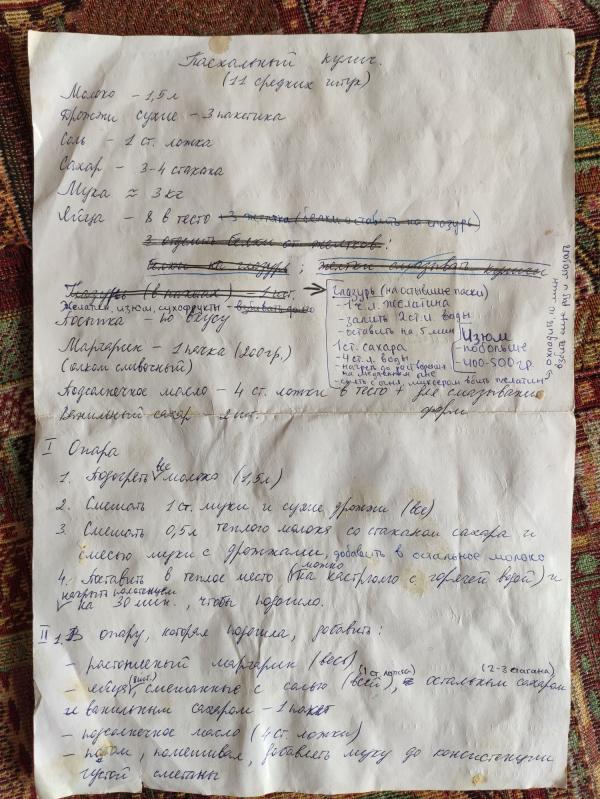 Пасхальный кулич.
(11 средних штук)
Молоко – 1,5 л
Дрожжи сухие – 3 пакетика
Соль – 1 ст. ложка
Сахар – 3-4 стакана
Мука ≈ 3 кг
Яйца – 8 в тесто 3 желтка (белки оставить на глазурь)
3 отделить белки от желтков!
белки на глазурь ; желтки смазывать куличи
Глазурь (в пакетах) – 1 шт.
Желатин, изюм, сухофрукты –
Посыпка – по вкусу
Маргарин – 1 пачка (200гр.)
(слив сливочный)
Глазурь (на остывшие паски)
– 1 ч.л. желатина
– залить 2 ст.л. воды
– оставить на 5 мин
1 ст. сахара
– 4 ст.л. воды
– нагреть до растворения
на медленном огне
– снять с огня, миксером вбить желатин
→ охладить 10 мин
взбить еще раз и мазать
Изюм
– побольше
– 400-500 гр.
Подсолнечное масло – 4 ст. ложки в тесто + для смазывания
форм
Ванильный сахар – 2 шт.
I Опара
1. Подогреть все молоко (1,5л)
2. Смешать 1 ст. муки и сухие дрожжи (все)
3. Смешать 0,5 л теплого молока со стаканом сахара и
смесью муки с дрожжами, добавить в остальное молоко
4. Поставить в теплое место (можно на кастрюлю с горячей водой) и
накрыть полотенцем
на 30 мин., чтобы подошло.
II 1. В опару, которая подошла, добавить:
– растопленый маргарин (весь)
– яйца (8 шт.) смешанные с солью (всей) (1 ст. ложка), остальным сахаром (2-3 стакана)
и ванильным сахаром – 1 пакет
– подсолнечное масло (4 ст. ложки)
– потом, помешивая, добавлять муку до консистенции
густой сметаны